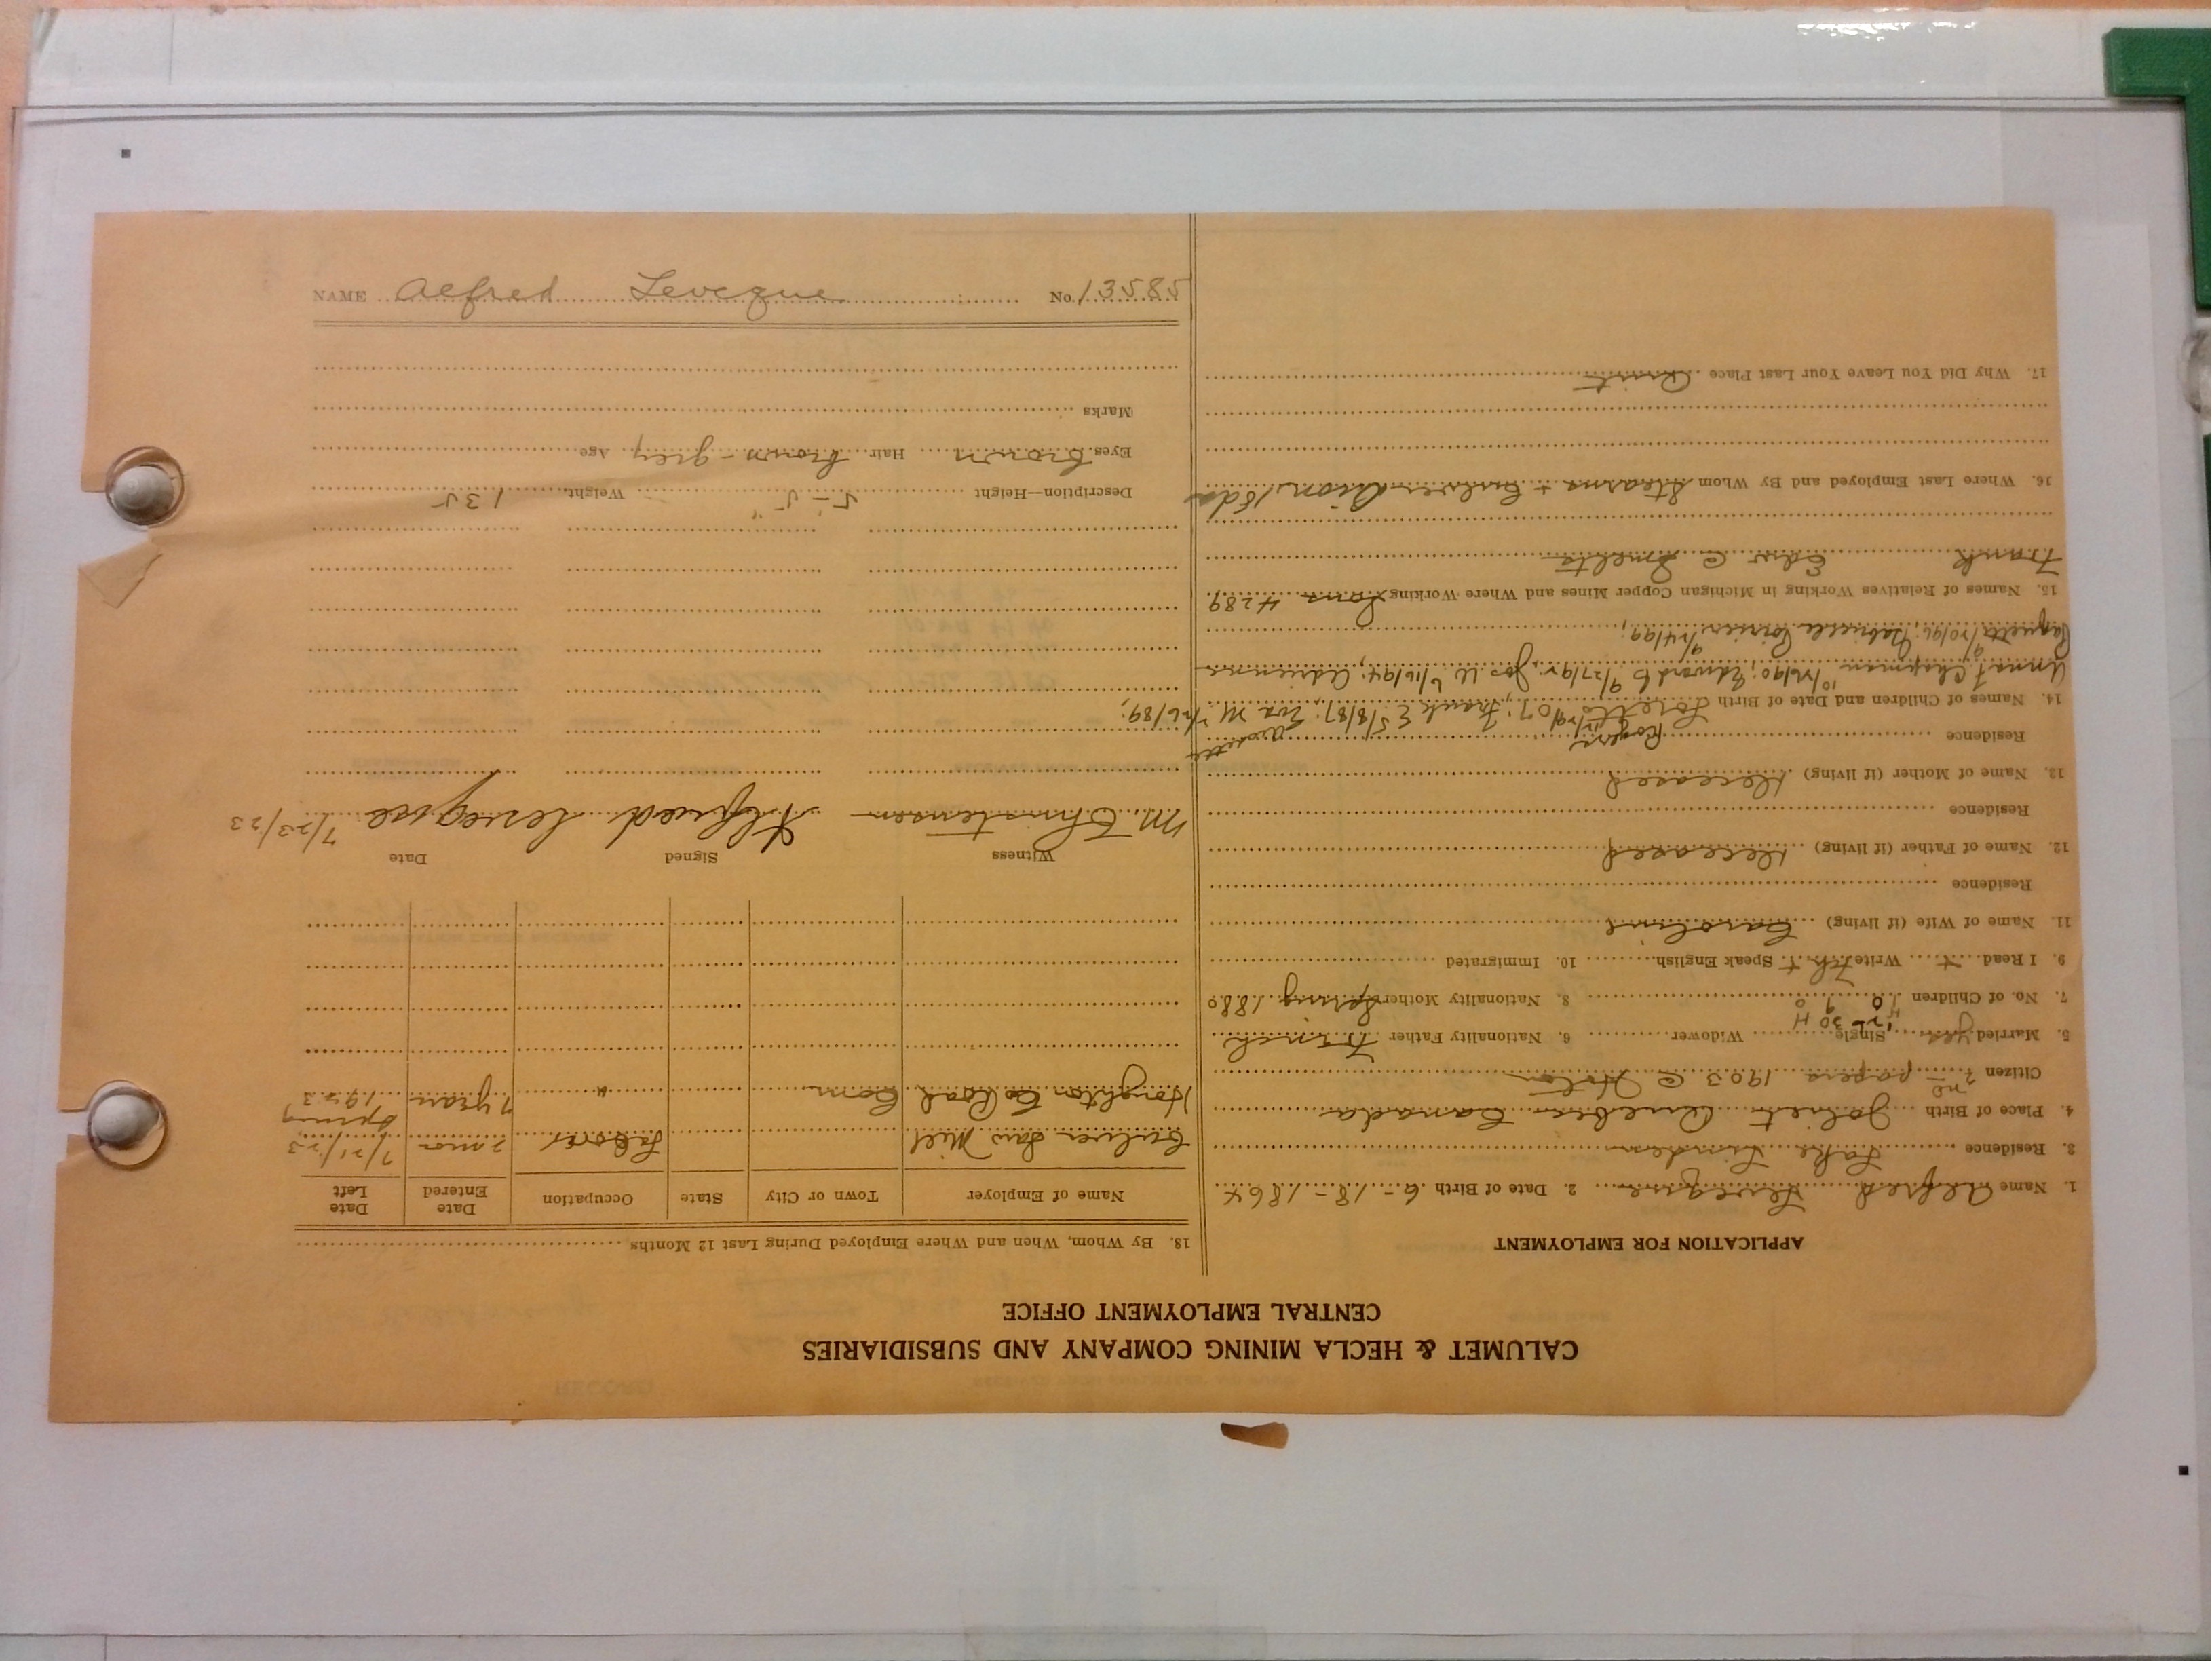 CALUMET & HECLA MINING COMPANY AND SUBSIDIARIES
CENTRAL EMPLOYMENT OFFICE
APPLICATION FOR EMPLOYMENT
1. Name Alfred Leveque 2. Date of Birth 6-18-1864
3. Residence Lake Linden
4. Place of Birth Joliet Quebec Canada
Citizen 2nd papers 1903 @ Hoton
5. Married yes Single Widower 6. Nationality Father French
7. No. of Children 10 8. Nationality Mother Spring 1880
9. I Read + Write Fch + Speak English 10. Immigrated
11. Name of Wife (if living) Caroline
Residence
12. Name of Father (if living) Deceased
Residence
13. Name of Mother (if living) Deceased
Residence Rogers
14. Names of Children and Date of Birth Loretta 07; Frank E 5/8/87; Eva M 2/26/89;
Anna F Chapman 10/16/90; Edward B 9/27/92; Jos. U 6/16/94; Adrienne
Paquette 9/20/96; 9/24/99;
15. Names of Relatives Working in Michigan Copper Mines and Where Working Sons 4289
Frank Edw @ Smelts
16. Where Last Employed and By Whom Stearns + Culver 18 da
17. Why Did You Leave Your Last Place Quit
18. By Whom, When and Where Employed During Last 12 Months
Name of Employer Town or City State Occupation Date Entered Date Left
Culver Saw Mill Laborer 2 mos 7/21/23
Houghton Co Road Com " 7 years Spring 1923
Witness Signed Date
M. Christensen Alfred Leveque 7/23/23
Description—Height 5'-5" Weight 135
Eyes brown Hair brown-grey Age
Marks
NAME Alfred Leveque No. 13585